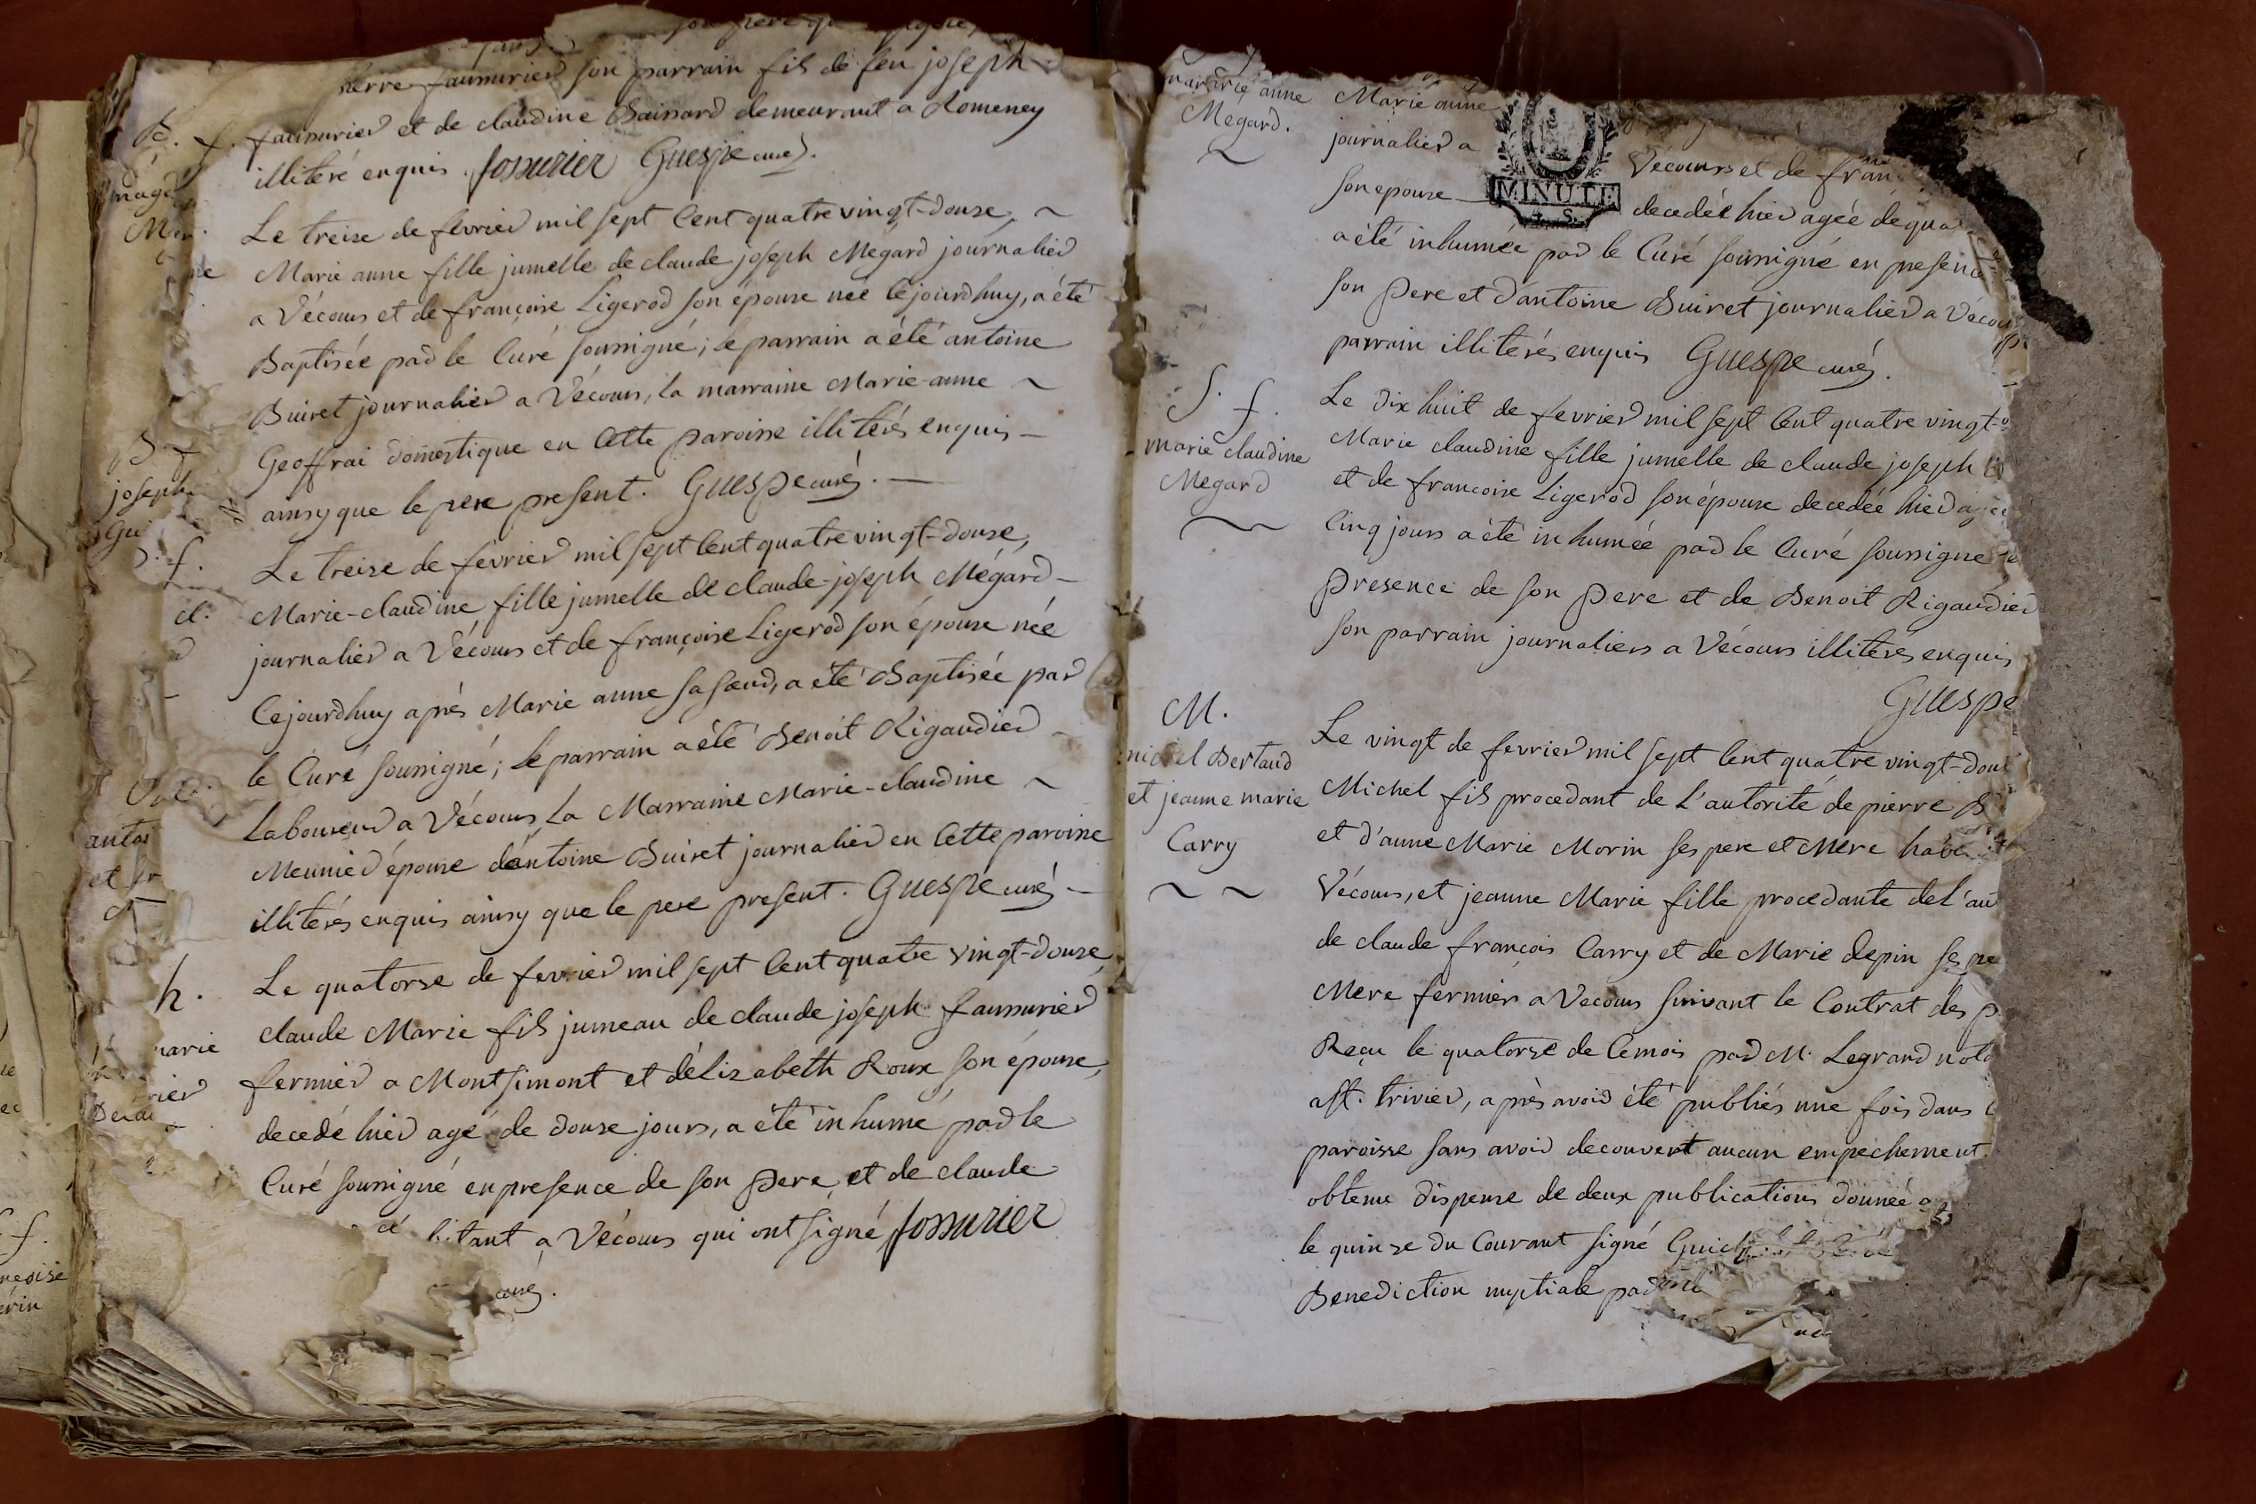 son pere qui
pierre faussurier son parrain fils de feu joseph
B. f. faussurier et de claudine Boissard demeurant a Romeney
illitéré enquis. fossurier Guespe curé.
Le treize de fevrier mil sept cent quatre vingt-douze, ~
Marie anne fille jumelle de claude joseph Megard journalier
a Vécours et de françoise Ligerod son épouse née cejourdhuy, a été
Baptisée par le Curé soussigné; le parrain a été antoine
Buiret journalier a Vécours, la marraine Marie-anne ~
Geoffrai domestique en cette paroisse illiterés enquis —
ainsy que le pere present. Guespe curé. —
Le treize de fevrier mil sept cent quatre vingt-douze,
Marie-claudine fille jumelle de claude-joseph Mégard —
journalier a Vécours et de françoise Ligerod son épouse née
cejourdhuy aprés Marie anne sa sœur, a été Baptisée par
le Curé soussigné; le parrain a été Benoit Rigaudier —
Laboureur a Vécours La Marraine Marie-claudine ~
Meunier épouse d'antoine Buiret journalier en cette paroisse
illiterés enquis ainsy que le pere present. Guespe curé —
h. Le quatorse de fevrier mil sept cent quatre vingt-douze,
claude Marie fils jumeau de claude joseph faussurier
fermier a Montsimont et d'élizabeth Roux son épouse,
decedé hier agé de douse jours, a été inhumé par le
Curé soussigné en presence de son Pere et de claude
bitant a Vécours qui ont signé fossurier
curé.
joseph
marie
marie anne
Megard.
~
Marie anne
journalier a Vécours et de fran
son epouse — MINUTE decedée hier agée de qua
a été inhumée par le Curé soussigné en presence
son Pere et d'antoine Buiret journalier a Vécours
parrain illiterés enquis Guespe curé.
S. f.
marie claudine
Megard
~
Le dix huit de fevrier mil sept cent quatre vingt-
Marie claudine fille jumelle de claude joseph
et de francoise Ligerod son épouse decedée hier agée
cinq jours a été inhumée par le Curé soussigné
presence de son Pere et de Benoit Rigaudier
son parrain journaliers a Vécours illiterés enquis
Guespe
M.
michel Bertaud
et jeanne marie
Carry
~ ~
Le vingt de fevrier mil sept cent quatre vingt-dou
Michel fils procedant de l'autorité de pierre B
et d'anne Marie Morin ses pere et Mere habi
Vécours, et jeanne Marie fille procedante de l'au
de claude françois Carry et de Marie depin ses pe
Mere fermiers a Vecours suivant le Contrat des p
Reçu le quatorse de cemois par M. Legrand nota
a St. trivier, aprés avoir été publiés une fois dans
paroisse sans avoir decouvert aucun empechement
obtenu dispense de deux publications donnée a
le quinze du Courant signé Guich
Benediction nuptiale par